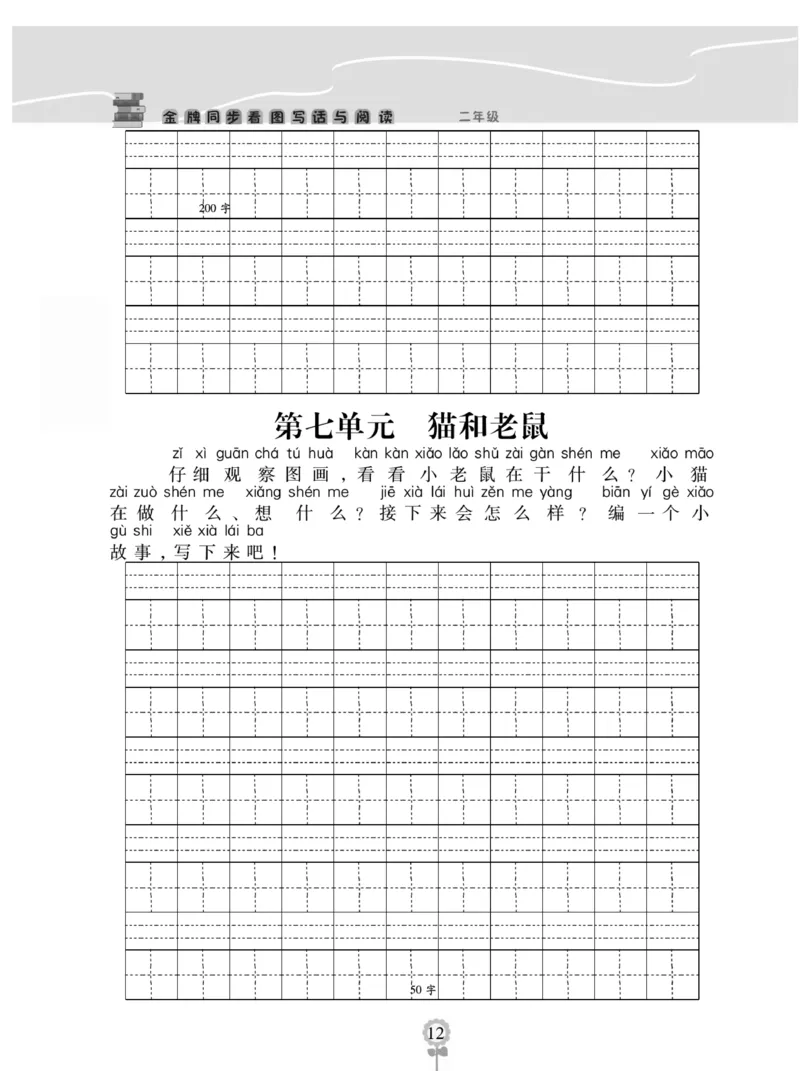 金牌同步看图写话与阅读 二年级
200 字
第七单元 猫和老鼠
zǐ xì guān chá tú huà kàn kàn xiǎo lǎo shǔ zài gàn shén me xiǎo māo
仔细观察图画，看看小老鼠在干什么？小猫
zài zuò shén me xiǎng shén me jiē xià lái huì zěn me yàng biān yí gè xiǎo
在做什么、想什么？接下来会怎么样？编一个小
gù shi xiě xià lái ba
故事，写下来吧！
50 字
12